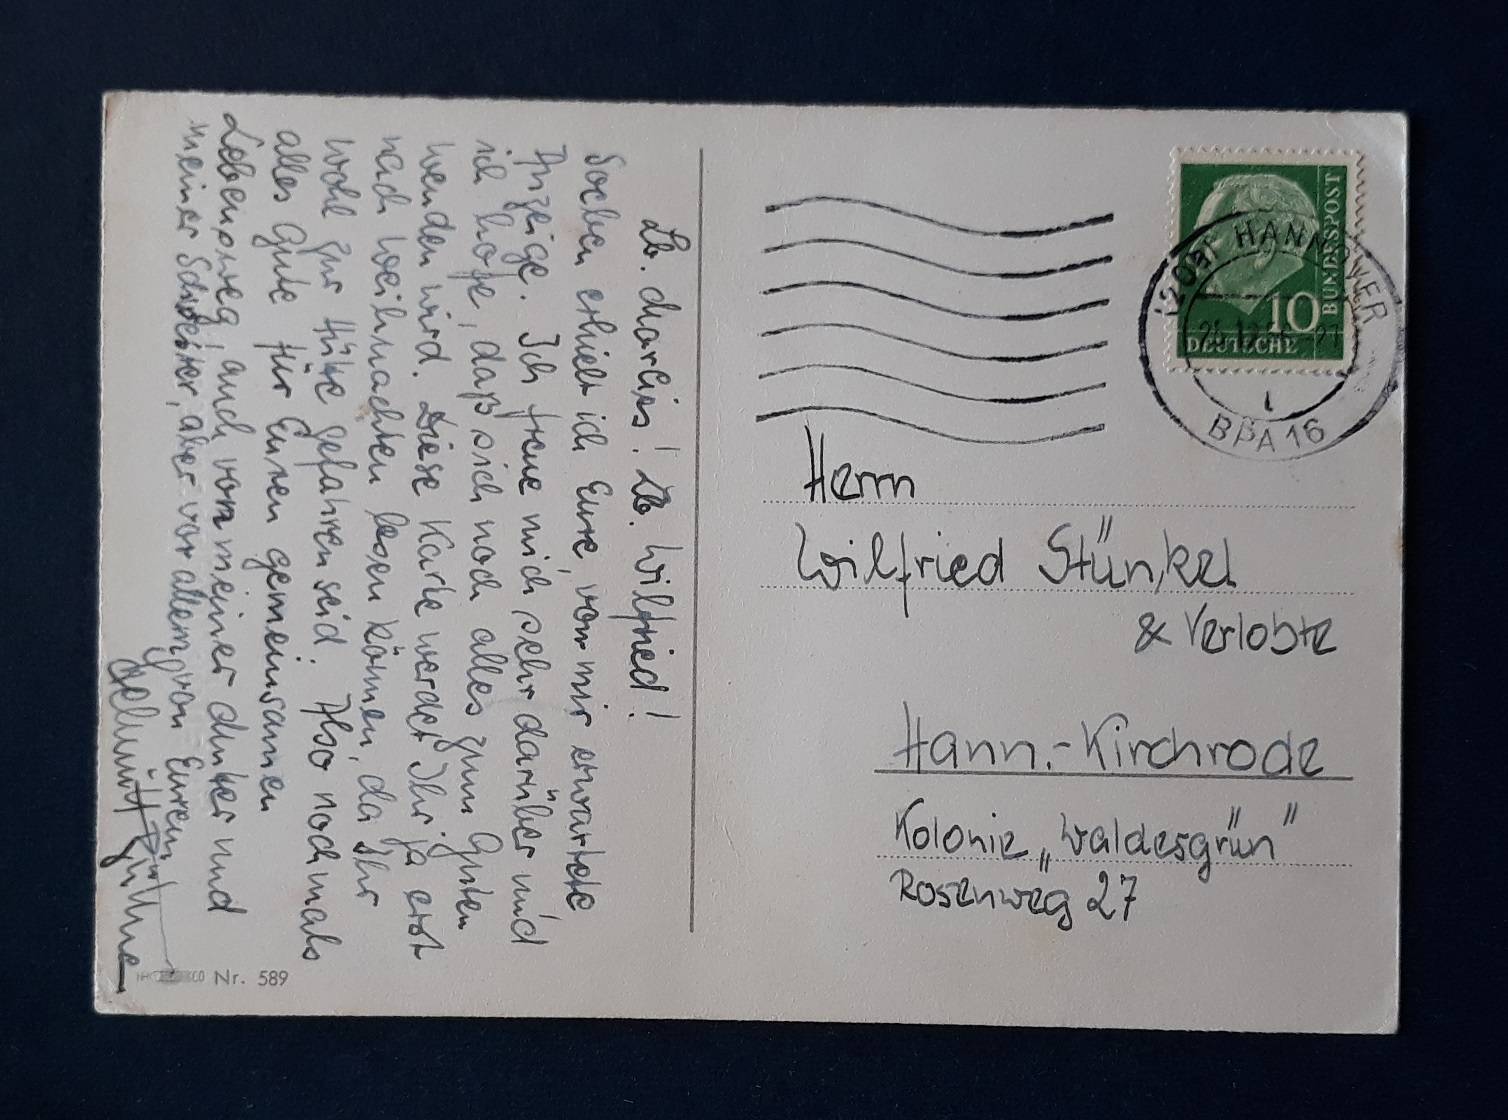 Lb. Marciss! Lb. Wilfried!
Soeben erhielt ich Eure, von mir erwartete
Anzeige. Ich freue mich sehr darüber und
ich hoffe, daß sich noch alles zum Guten
wenden wird. Diese Karte werdet Ihr ja erst
nach Weihnachten lesen können, da Ihr
wohl zur Hütte gefahren seid. Also noch mals
alles Gute für Euren gemeinsamen
Lebensweg! auch von meiner Mutter und
meiner Schwester, aber vor allem von Eurem
Helmut
Nr. 589
BUNDESPOST
10
DEUTSCHE
HANNOVER
BPA 16
Herrn
Wilfried Stünkel
& Verlobte
Hann.-Kirchrode
Kolonie „Waldesgrün"
Rosenweg 27